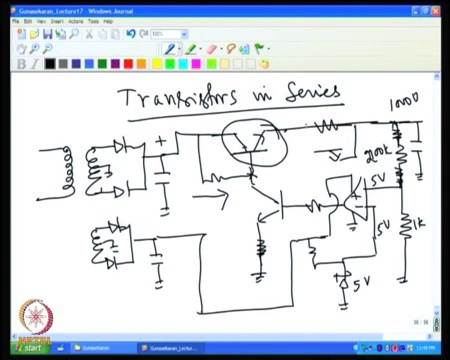 Gunasekaran_Lecture17 - Windows Journal
File Edit View Insert Actions Tools Help
100%
Transistors in Series
1000V
200K
5V
5V
1K
5V
start
Gunasekaran
Gunasekaran_Lectu...